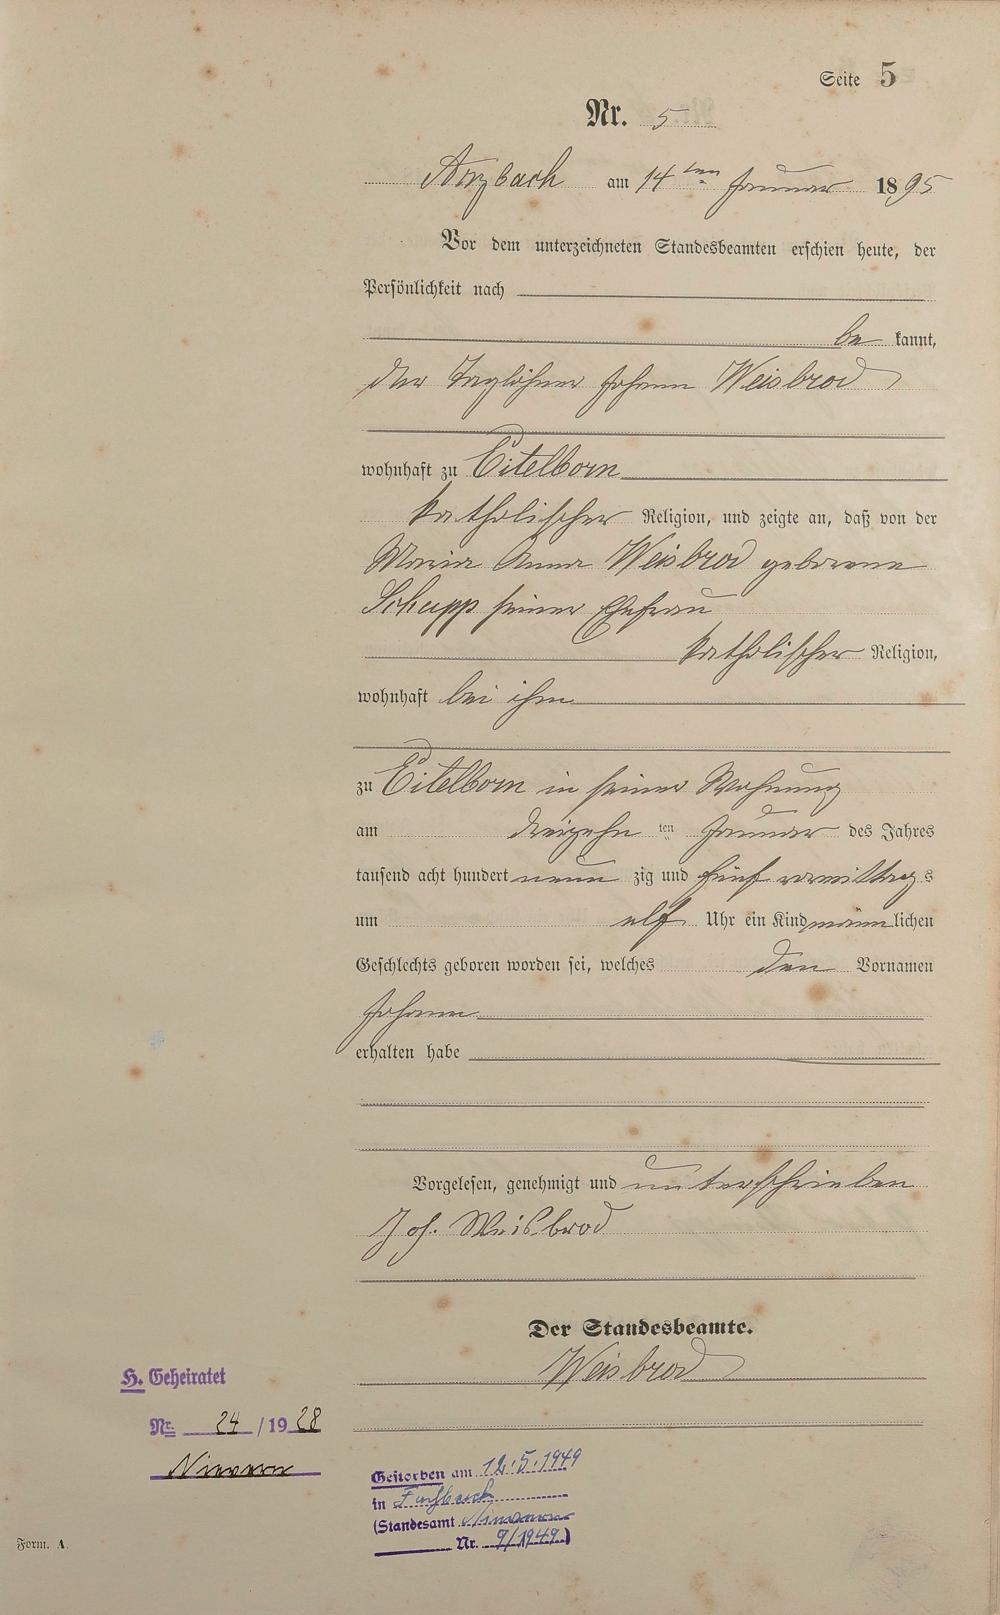 Seite 5
Nr. 5
Arzbach am 14ten Januar 1895
Vor dem unterzeichneten Standesbeamten erschien heute, der
Persönlichkeit nach
be kannt,
der Taglöhner Johann Weisbrod
wohnhaft zu Eitelborn
katholischer Religion, und zeigte an, daß von der
Maria Anna Weisbrod geborene
Schupp seiner Ehefrau
katholischer Religion,
wohnhaft bei ihm
zu Eitelborn in seiner Wohnung
am dreizehn ten Januar des Jahres
tausend acht hundert neun zig und fünf vormittags
um elf Uhr ein Kind männlichen
Geschlechts geboren worden sei, welches den Vornamen
Johann
erhalten habe
Vorgelesen, genehmigt und unterschrieben
Joh. Weisbrod
Der Standesbeamte.
Weisbrod
H. Geheiratet
Nr. 24/1928
Nievern
Gestorben am 12.5.1949
in Fachbach
(Standesamt Nievern
Nr. 9/1949)
Form. A.